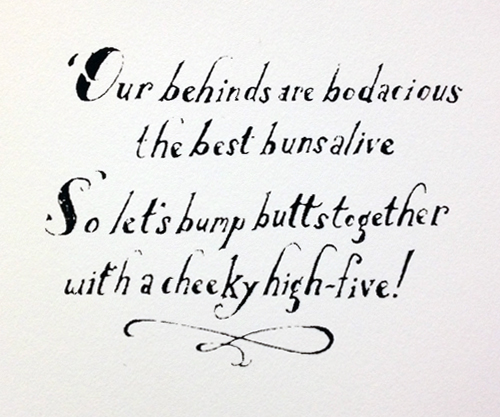 'Our behinds are bodacious
the best buns alive
So let's bump butts together
with a cheeky high-five!